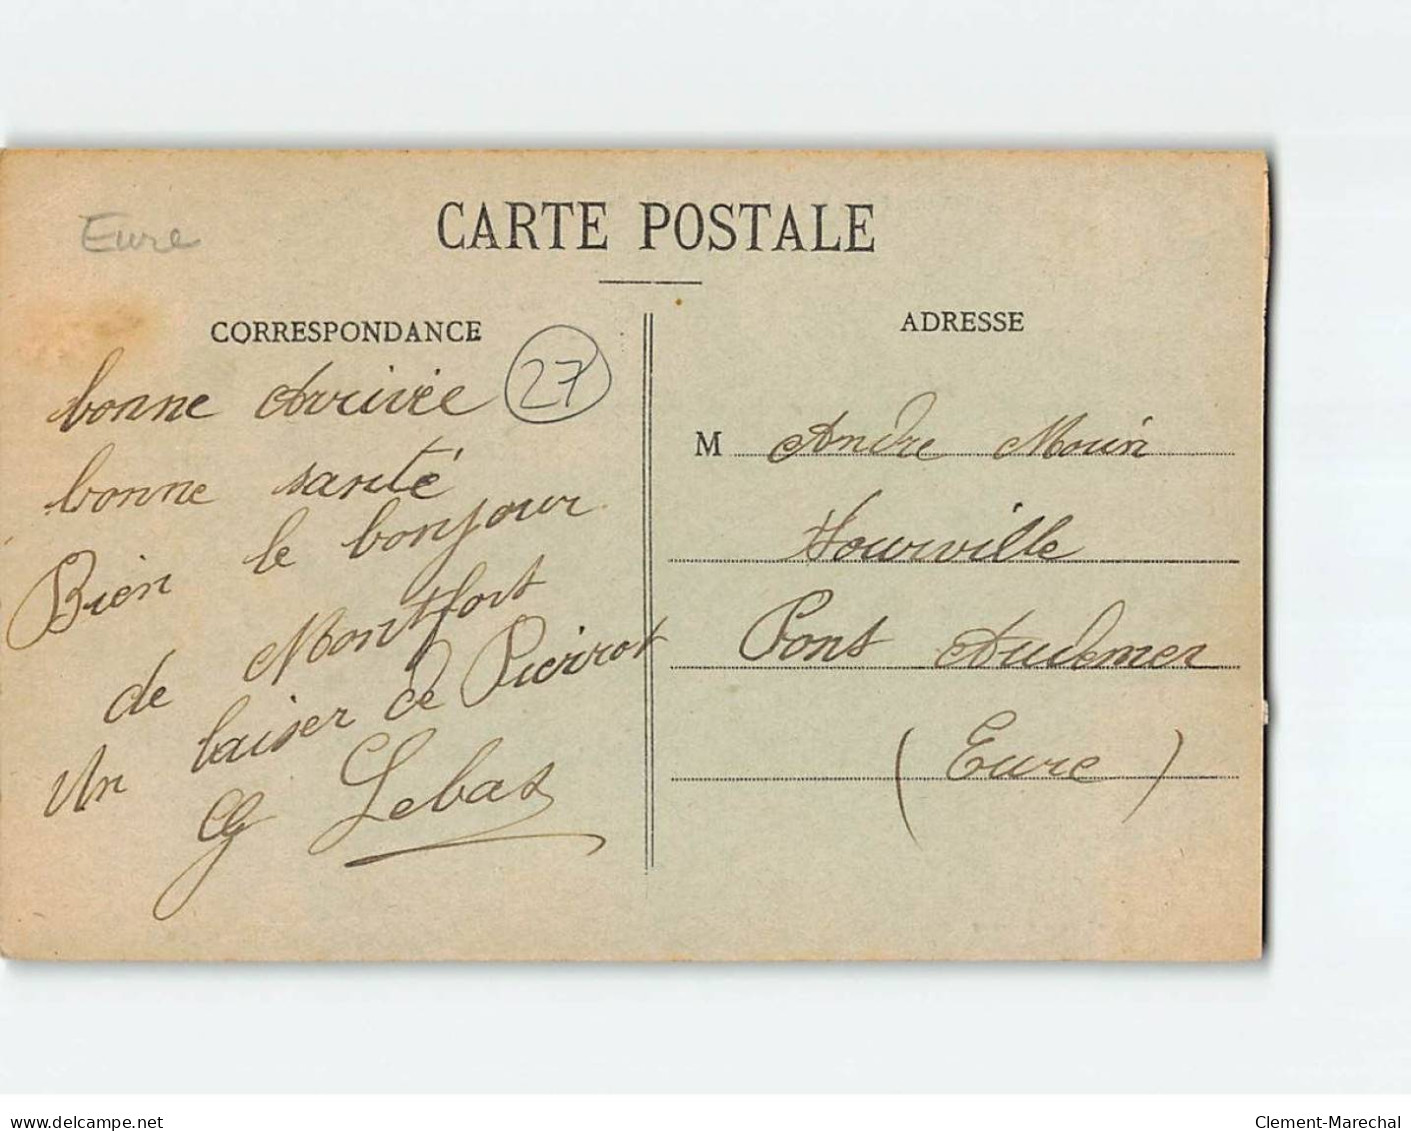 Eure
CARTE POSTALE
CORRESPONDANCE
27
bonne Arrivée
bonne santé
Bien le bonjour
de Montfort
Un baiser de Pierrot
G Lebas
ADRESSE
M Andre Morin
Tourville
Pont Audemer
(Eure)
www.delcampe.net
Clement-Marechal